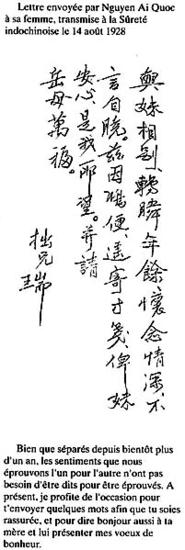 Lettre envoyée par Nguyen Ai Quoc
à sa femme, transmise à la Sûreté
indochinoise le 14 août 1928
與妹相別、轉瞬年餘懷念情深、不
言自曉。茲因鴻便、遙寄寸箋、俾妹
安心、是我所望。并請
岳母萬福。
拙兄
瑞
Bien que séparés depuis bientôt plus
d'un an, les sentiments que nous
éprouvons l'un pour l'autre n'ont pas
besoin d'être dits pour être éprouvés. A
présent, je profite de l'occasion pour
t'envoyer quelques mots afin que tu soies
rassurée, et pour dire bonjour aussi à ta
mère et lui présenter mes voeux de
bonheur.